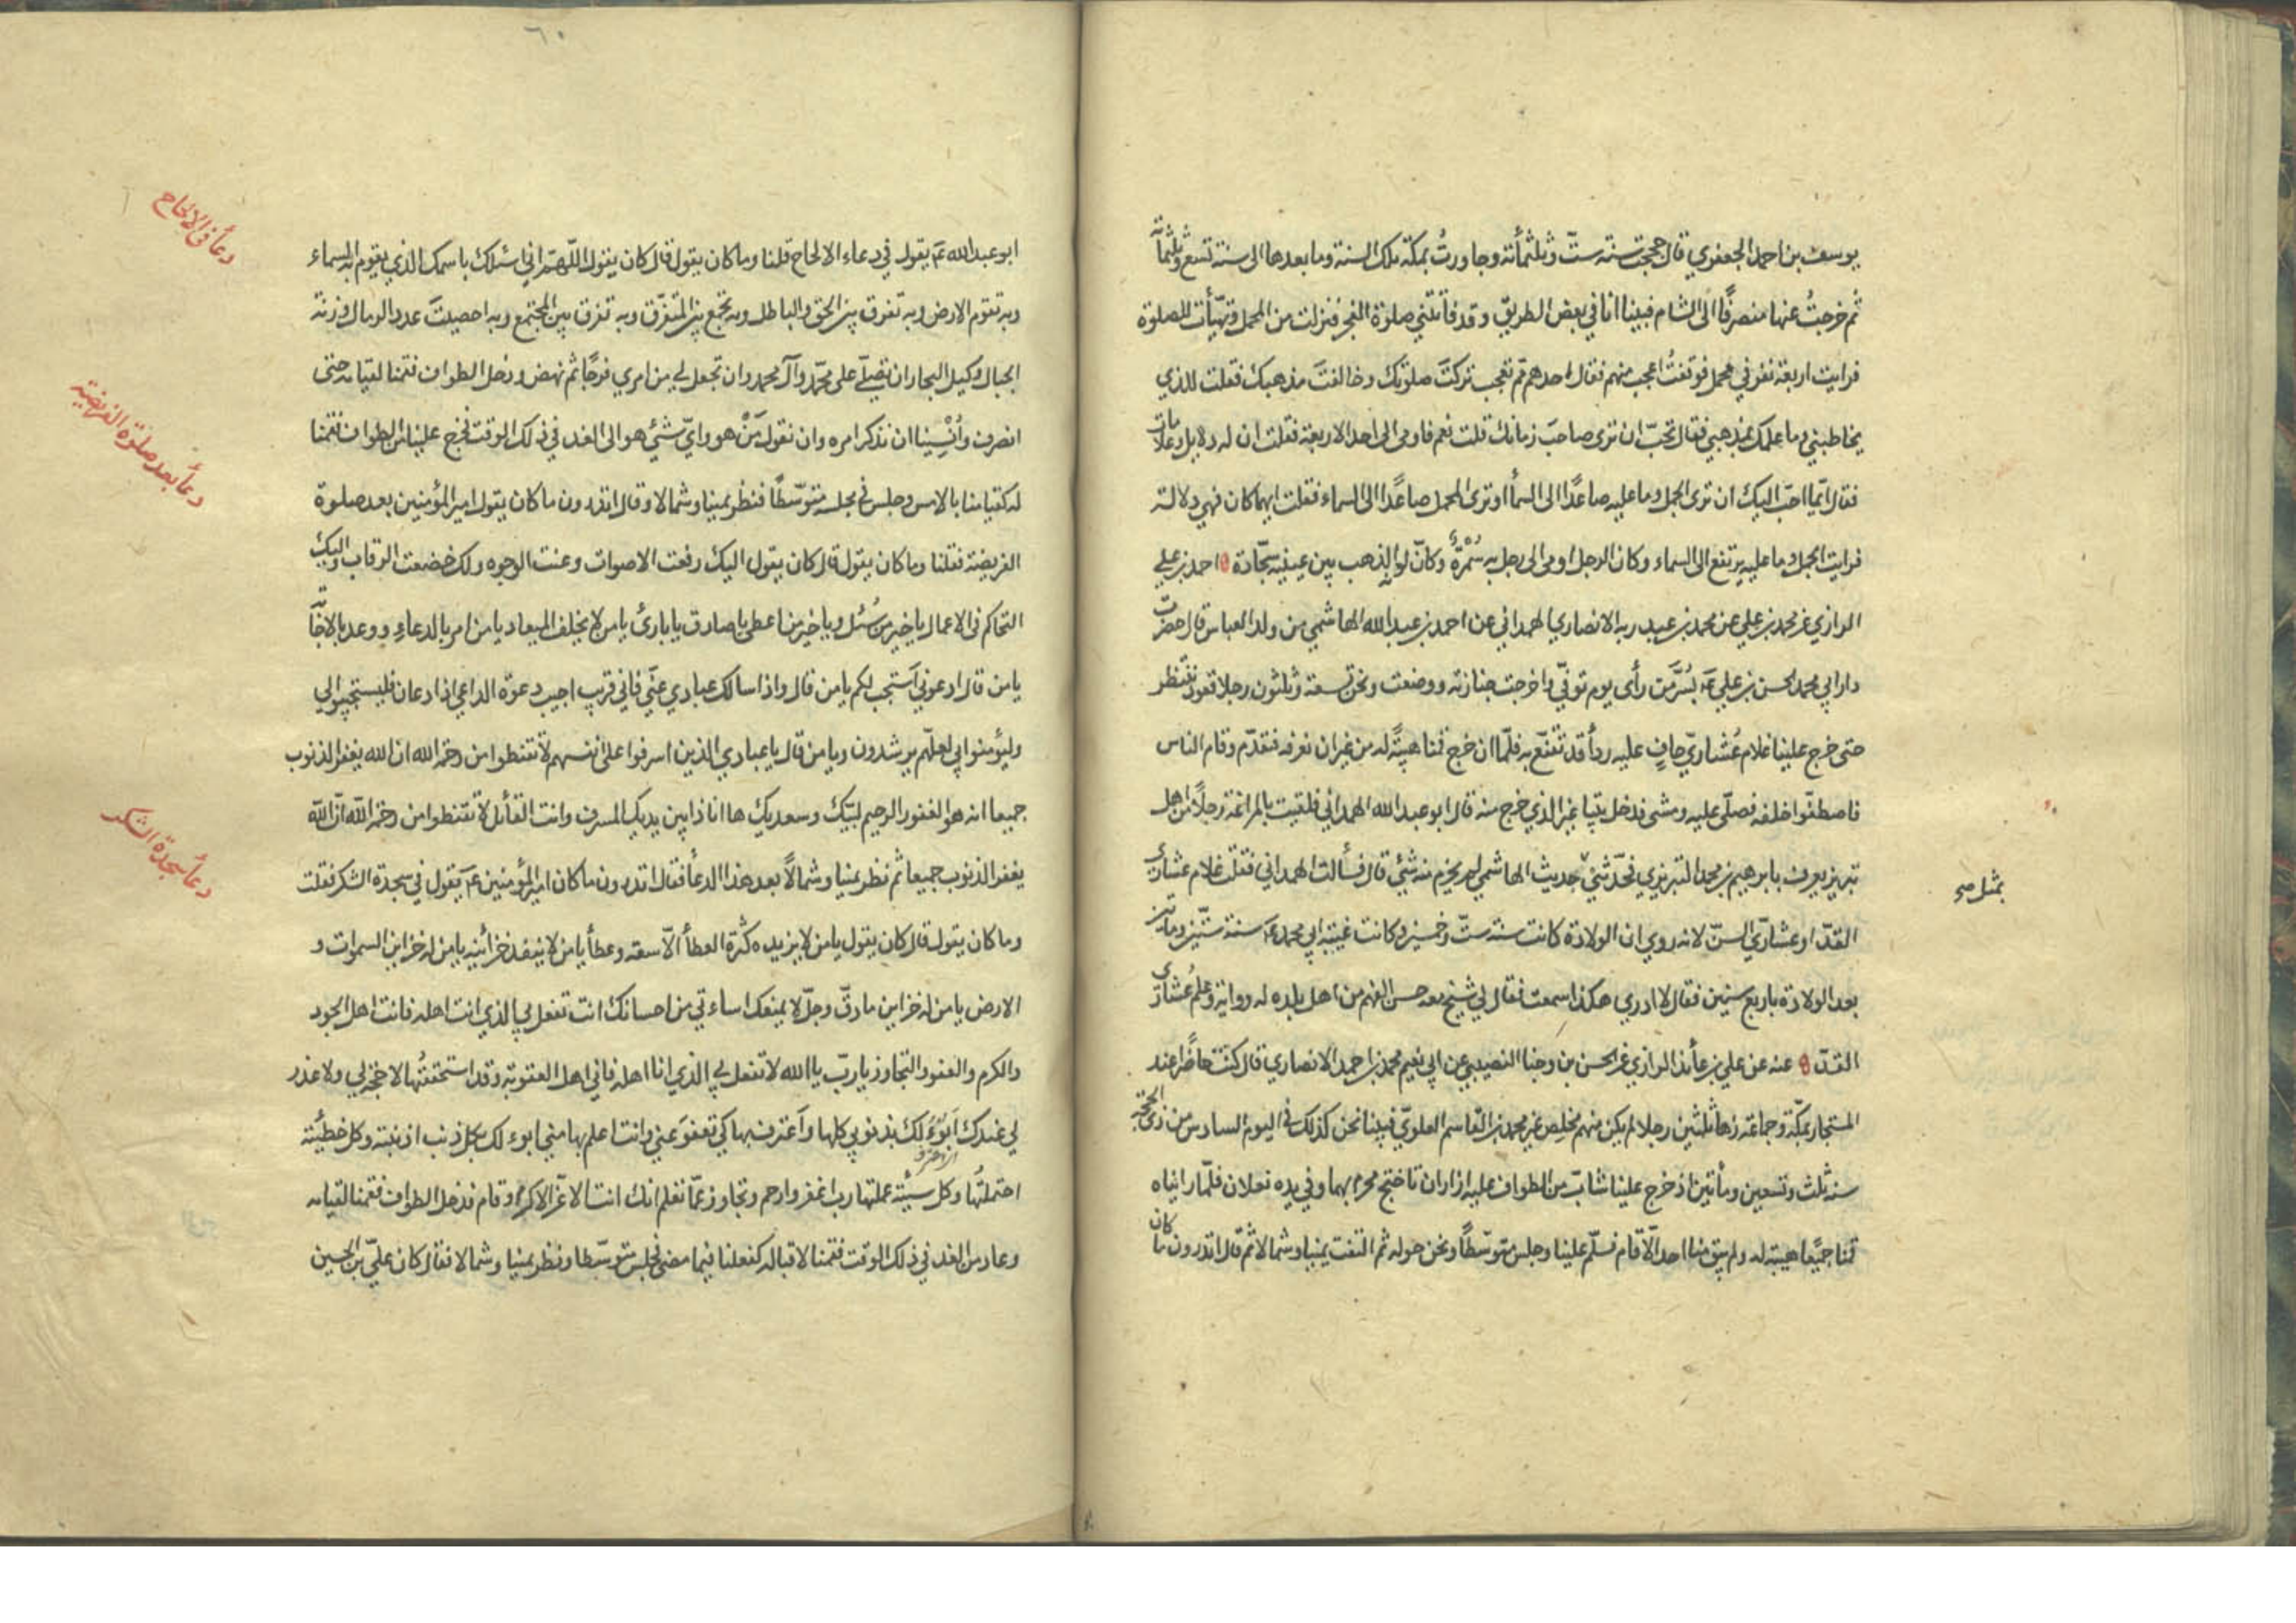 يوسف بن احمد الجعفري قال حججت سنة ستّ وثلثمأته وجاورتُ بمكة تلك السنة وما بعدها الى سنة تسع وثلثمأته
ثم خرجتُ عنها منصرفًا الى الشام فبينا انا في بعض الطريق وقد فاتتني صلوة الفجر فنزلت من المحمل وتهيّأت للصلوة
فرايت اربعة نفر في محمل فوقفتُ اعجب منهم فقال احدهم مّم تعجب تركتَ صلوتك وخالفتَ مذهبك فقلت للذي
يخاطبني وما علمك بمذهبي فقال تحبّ ان ترى صاحبَ زمانك قلت نعم فاومى الى احد الاربعة فقلت ان له دلايل وعلامات
فقال ايّما احبّ اليك ان ترى الجمل وما عليه صاعدًا الى السمأ او ترى المحمل صاعدًا الى السماء فقلت ايهما كان فهي دلالة
فرايت الجمل وما عليه يرتفع الى السماء وكان الرجل اومى الى رجل به سُمْرةٌ وكانّ لونه الذهب بين عينيه سجّادة ه احمد بن علي
الرازي عن محمد بن علي عن محمد بن عبد ربه الانصاري الهمداني عن احمد بن عبد الله الهاشمي من ولد العباس قال حضرت
دار ابي محمد الحسن بن علي عَ بسُرَّمَن رأى يوم توفّي واخرجت جنازته ووضعت ونحن تسعة وثلثون رجلا قعود ننتظر
حتى خرج علينا غلام عُشاريّ حافٍ عليه ردأ قد تقنّع به فلمّا ان خرج قمنا هيبةً له من غير ان نعرفه فتقدّم وقام الناس
فاصطفّوا خلفه فصلّى عليه ومشى فدخل بيتا غير الذي خرج منه قال ابو عبد الله الهمداني فلقيت بالمراغة رجلًا من اهل
تبريز يعرف بابرهيم بن محمد التبريزي فحدّثني حديث الهاشمي لم يخرم منه شئ قال فسألت الهمداني فقلت غلام عشاريّ
بمثل صح
القدّ او عشاريّ السنّ لانه روي ان الولادة كانت سنة ستّ وخمسين وكانت غيبة ابي محمد عَ سنة ستّين ومأتين
بعد الولادة باربع سنين فقال لا ادري هكذا سمعت فقال لي شيخ معه حسن الفهم من اهل بلده له رواية وعلم عُشاريّ
القدّ ه عنه عن علي بن عأئذ الرازي عن الحسن بن وجنا النصيبي عن ابي نعيم محمد بن احمد الانصاري قال كنت حاضرًا عند
المستجار بمكّة وجماعة زها ثلثين رجلا لم يكن منهم مخلص غير محمد بن القاسم العلويّ فبينا نحن كذلك في اليوم السادس من ذي الحجّة
سنة ثلث وتسعين ومأتين اذ خرج علينا شابّ من الطواف عليه ازاران ناختج محرم بهما وفي يده نعلان فلمّا رايناه
قمنا جميعًا هيبة له ولم يبق منا احد الّا قام فسلّم علينا وجلس متوسّطًا ونحن حوله ثم التفت يمينا وشمالا ثم قال اتدرون ما كان
٦٠
ابو عبد الله عَ يقوله في دعاء الالحاح قلنا وما كان يقول قال كان يقول اللّهمّ اني اسئلك باسمك الذي يقوم به السماء
دعأ في الالحاح
وبه تقوم الارض وبه تفرق بين الحق والباطل وبه تجمع بين المتفرّق وبه تفرق بين المجتمع وبه احصيتَ عدد الرمال وزنة
الجبال وكيل البحار ان تصلّي على محمّد وآل محمد وان تجعل لي من امري فرجًا ثم نهض ودخل الطواف فقمنا لقيامه حتى
انصرف وأُنْسِينا ان نذكر امره وان نقول مَنْ هو وايّ شئٍ هو الى الغد في ذلك الوقت فخرج علينا من الطواف فقمنا
دعأ بعد صلوة الفريضة
له كقيامنا بالامس وجلس في مجلسه متوسّطًا فنظر يمينا وشمالا وقال اتدرون ما كان يقول امير المؤمنين بعد صلوة
الفريضة فقلنا وما كان يقول قال كان يقول اليك رفعت الاصوات وعنت الوجوه ولك خضعت الرقاب واليك
التحاكم في الاعمال يا خير من سُئل ويا خير من اعطى يا صادق يا بارئ يا من لا يخلف الميعاد يا من امر بالدعاءِ ووعد بالاجابة
يا من قال ادعوني استجب لكم يا من قال واذا سالك عبادي عنّي فاني قريب اجيب دعوة الداعي اذا دعان فليستجيبوا لي
وليؤمنوا بي لعلّهم يرشدون ويا من قال يا عبادي الذين اسرفوا على انفسهم لا تقنطوا من رحمة الله ان الله يغفر الذنوب
جميعا انه هو الغفور الرحيم لبّيك وسعديك ها انا ذا بين يديك المسرف وانت القأئل لا تقنطوا من رحمة الله انّ الله
دعأ سجدة الشكر
يغفر الذنوب جميعا ثم نظر يمينا وشمالاً بعد هذا الدعأ فقال اتدرون ما كان امير المؤمنين عَ يقول في سجدة الشكر فقلت
وما كان يقول قال كان يقول يا من لا يزيده كثرة العطأ الّا سعة وعطأ يا من لا ينفد خزائنه يا من له خزاين السموات و
الارض يا من له خزاين ما دقّ وجلّ لا يمنعك اساءتي من احسانك انت تفعل بي الذي انت اهله فانت اهل الجود
والكرم والعفو والتجاوز يا ربّ يا الله لا تفعل بي الذي انا اهله فاني اهل العقوبة وقد استحققتُها لا حجّة لي ولا عذر
لي عندك اَبُوءُ لك بذنوبي كلها واَعترف بها كي تعفوَ عني وانت اعلم بها مني ابوء لك بكل ذنب اذنبته وكل خطيئة
احتملتُها وكل سيئة عملتها رب اغفر وارحم وتجاوز عمّا تعلم انك انت الاعزّ الاكرم وقام فدخل الطواف فقمنا لقيامه
وعاد من الغد في ذلك الوقت فقمنا لاقباله كفعلنا فيما مضى فجلس متوسّطا ونظر يمينا وشمالا فقال كان عليّ بن الحسين